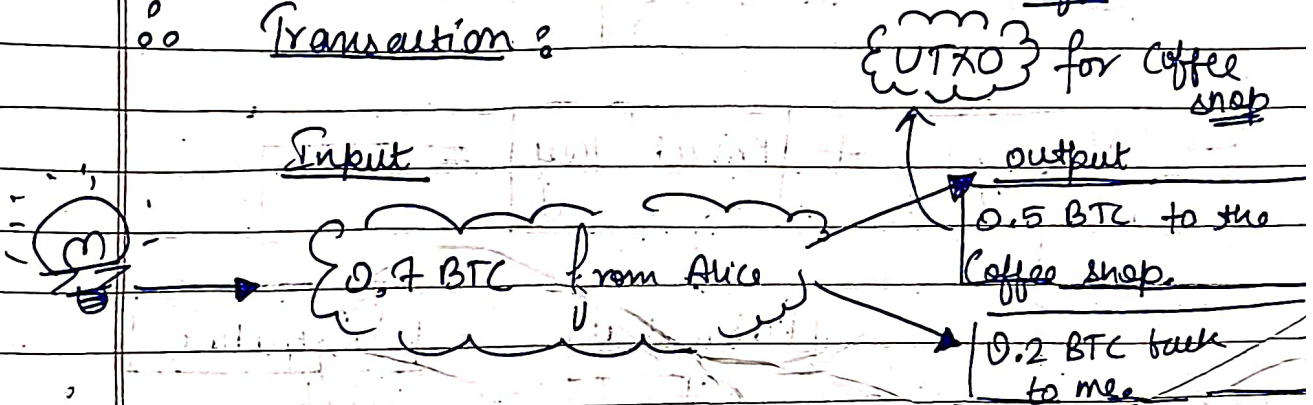 Transaction :
{UTXO} for Coffee
shop
Input
output
0.7 BTC from Alice
0.5 BTC to the
Coffee shop.
0.2 BTC back
to me.